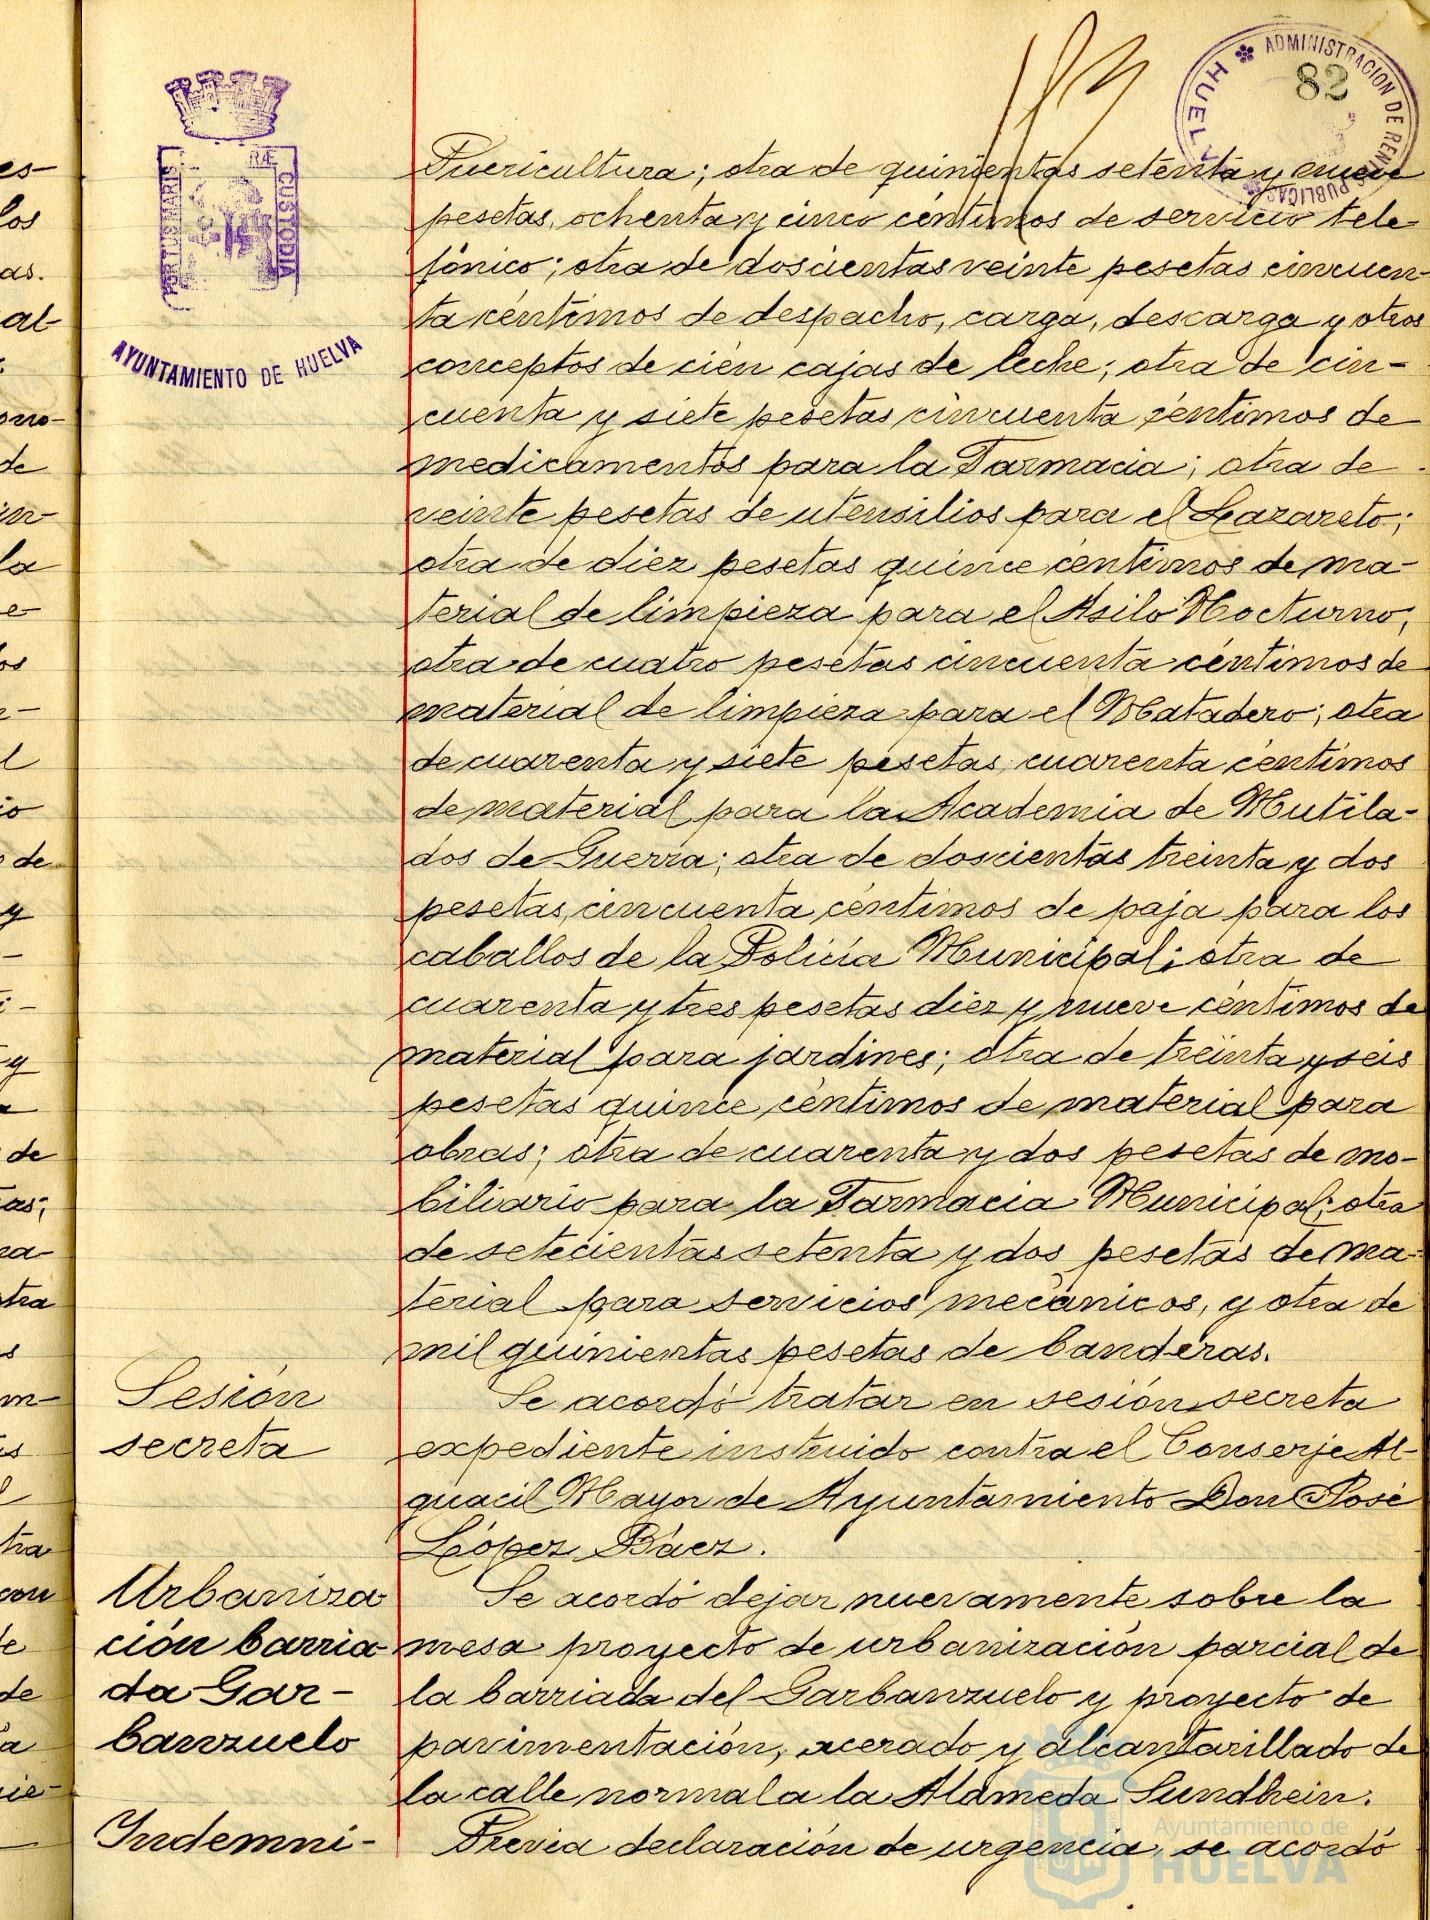 82
ADMINISTRACION DE RENTAS PUBLICAS
HUELVA
PORTUS MARIS
CUSTODIA
AYUNTAMIENTO DE HUELVA
Puericultura; otra de quinientas setenta y nueve
pesetas, ochenta y cinco céntimos de servicio tele-
fónico; otra de doscientas veinte pesetas cincuen-
ta céntimos de despacho, carga, descarga y otros
conceptos de cien cajas de leche; otra de cin-
cuenta y siete pesetas cincuenta céntimos de
medicamentos para la Farmacia; otra de
veinte pesetas de utensilios para el Lazareto;
otra de diez pesetas quince céntimos de ma-
terial de limpieza para el Asilo Nocturno;
otra de cuatro pesetas cincuenta céntimos de
material de limpieza para el Matadero; otra
de cuarenta y siete pesetas, cuarenta céntimos
de material para la Academia de Mutila-
dos de Guerra; otra de doscientas treinta y dos
pesetas, cincuenta céntimos de paja para los
caballos de la Policía Municipal; otra de
cuarenta y tres pesetas diez y nueve céntimos de
material para jardines; otra de treinta y seis
pesetas quince céntimos de material para
obras; otra de cuarenta y dos pesetas de mo-
biliario para la Farmacia Municipal; otra
de setecientas setenta y dos pesetas de ma-
terial para servicios mecánicos, y otra de
mil quinientas pesetas de banderas.
Sesión
secreta
Se acordó tratar en sesión secreta
expediente instruido contra el Conserje Al-
guacil Mayor de Ayuntamiento Don José
López Báez.
Urbaniza
ción barria
da Gar-
banzuelo
Se acordó dejar nuevamente sobre la
mesa proyecto de urbanización parcial de
la barriada del Garbanzuelo y proyecto de
pavimentación, acerado y alcantarillado de
la calle normal a la Alameda Sundhein.
Indemni-
Previa declaración de urgencia, se acordó
Ayuntamiento de
HUELVA